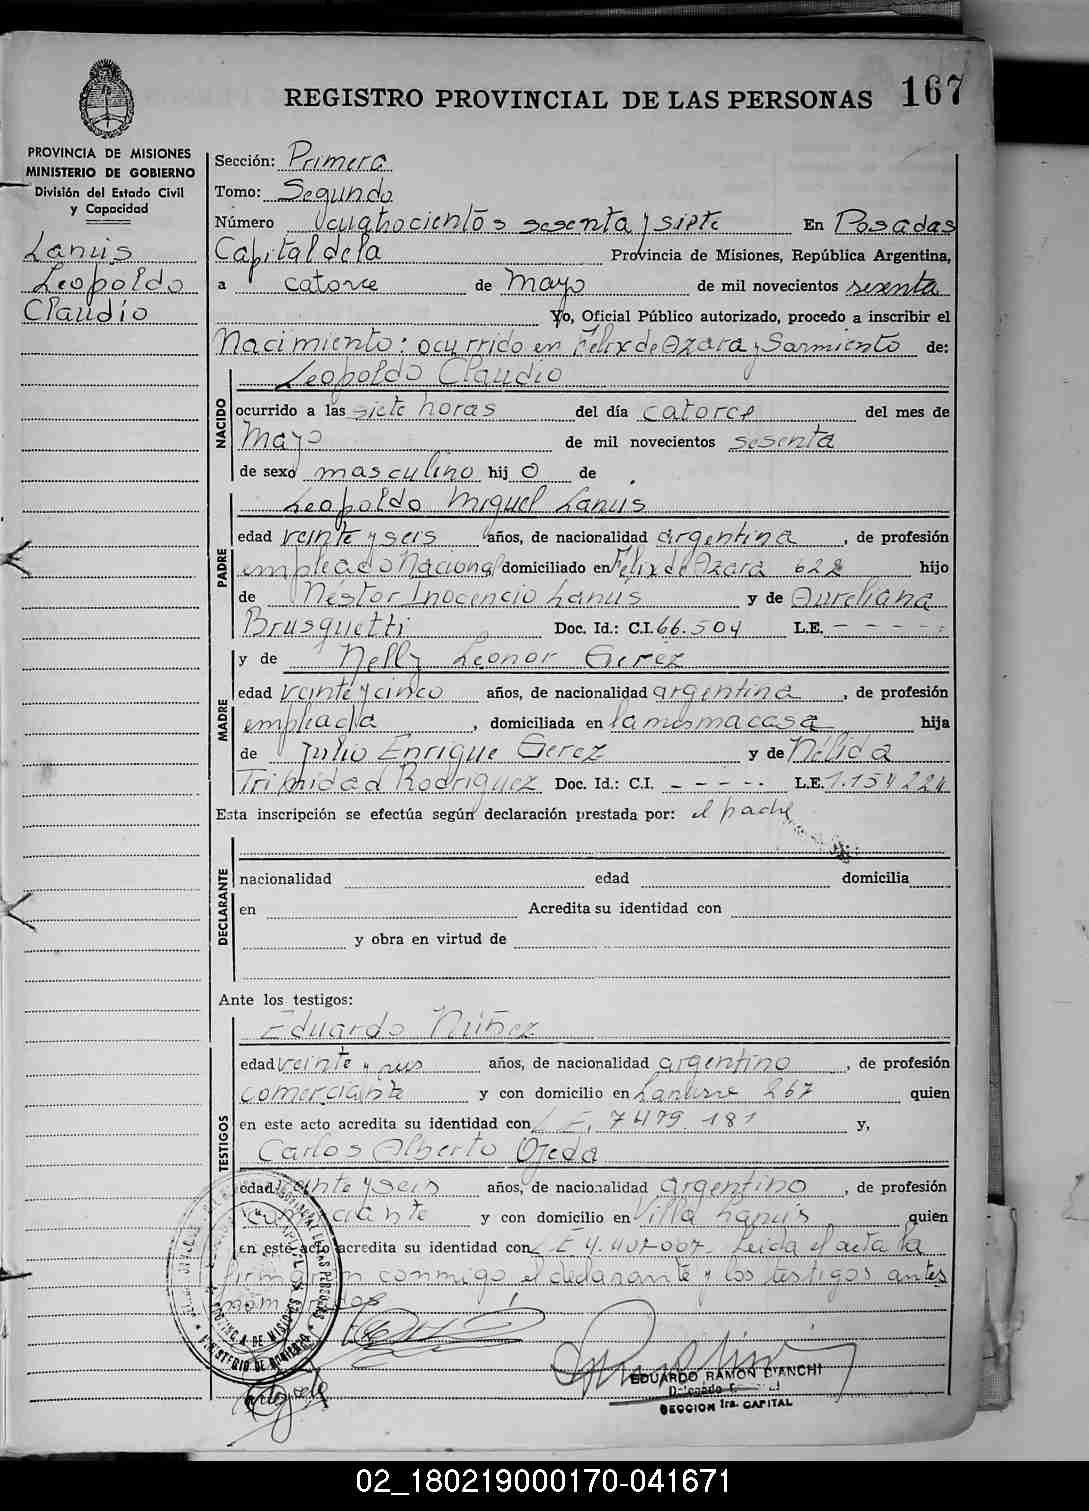 REGISTRO PROVINCIAL DE LAS PERSONAS 167
PROVINCIA DE MISIONES
MINISTERIO DE GOBIERNO
División del Estado Civil
y Capacidad
Lanús
Leopoldo
Claudio
Sección: Primera
Tomo: Segundo
Número cuatrocientos sesenta y siete En Posadas
Capital de la Provincia de Misiones, República Argentina,
a catorce de Mayo de mil novecientos sesenta
Yo, Oficial Público autorizado, procedo a inscribir el
Nacimiento: ocurrido en Felix de Azara y Sarmiento de:
NACIDO
Leopoldo Claudio
ocurrido a las siete horas del día catorce del mes de
Mayo de mil novecientos sesenta
de sexo masculino hij o de
PADRE
Leopoldo Miguel Lanús
edad veinte y seis años, de nacionalidad argentina, de profesión
empleado Nacional domiciliado en Felix de Azara 622 hijo
de Néstor Inocencio Lanús y de Aureliana
Brusquetti Doc. Id.: C.I. 66.504 L.E. - - - - -
MADRE
y de Nelly Leonor Gerez
edad veinte y cinco años, de nacionalidad argentina, de profesión
empleada, domiciliada en la misma casa hija
de Julio Enrique Gerez y de Nélida
Trinidad Rodriguez Doc. Id.: C.I. - - - - - L.E. 1.154.224
Esta inscripción se efectúa según declaración prestada por: el padre
DECLARANTE
nacionalidad edad domicilia
en Acredita su identidad con
y obra en virtud de
Ante los testigos:
TESTIGOS
Eduardo Núñez
edad veinte y años, de nacionalidad argentino, de profesión
comerciante y con domicilio en 267 quien
en este acto acredita su identidad con L E. 7479 181 y,
Carlos Alberto Ojeda
edad veinte y seis años, de nacionalidad argentino, de profesión
comerciante y con domicilio en Villa Lanús quien
en este acto acredita su identidad con L E 4.407-007. Leida el acta la
firmaron conmigo el declarante y los testigos antes
EDUARDO RAMON BIANCHI
SECCION 1ra. CAPITAL
MINISTERIO DE GOBIERNO
PROVINCIA DE MISIONES
02_180219000170-041671